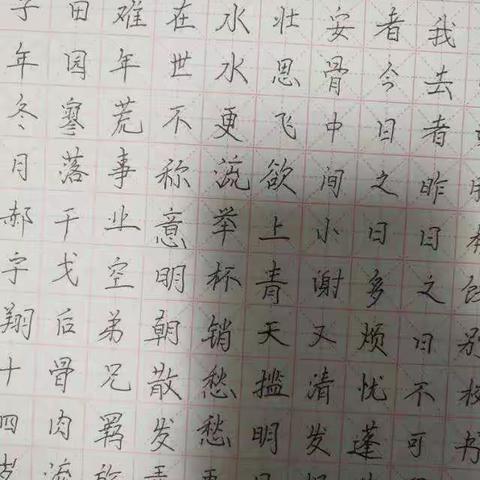 别校书
我去者昨日之日不可
者今日之日多烦忧蓬
安骨中间小谢又清发
壮思飞欲上青天揽明
水水更流举杯销愁愁
在世不称意明朝散发
难年荒事业空弟兄羁
田园寥落干戈后骨肉流
子年冬月郝宇翔十四岁